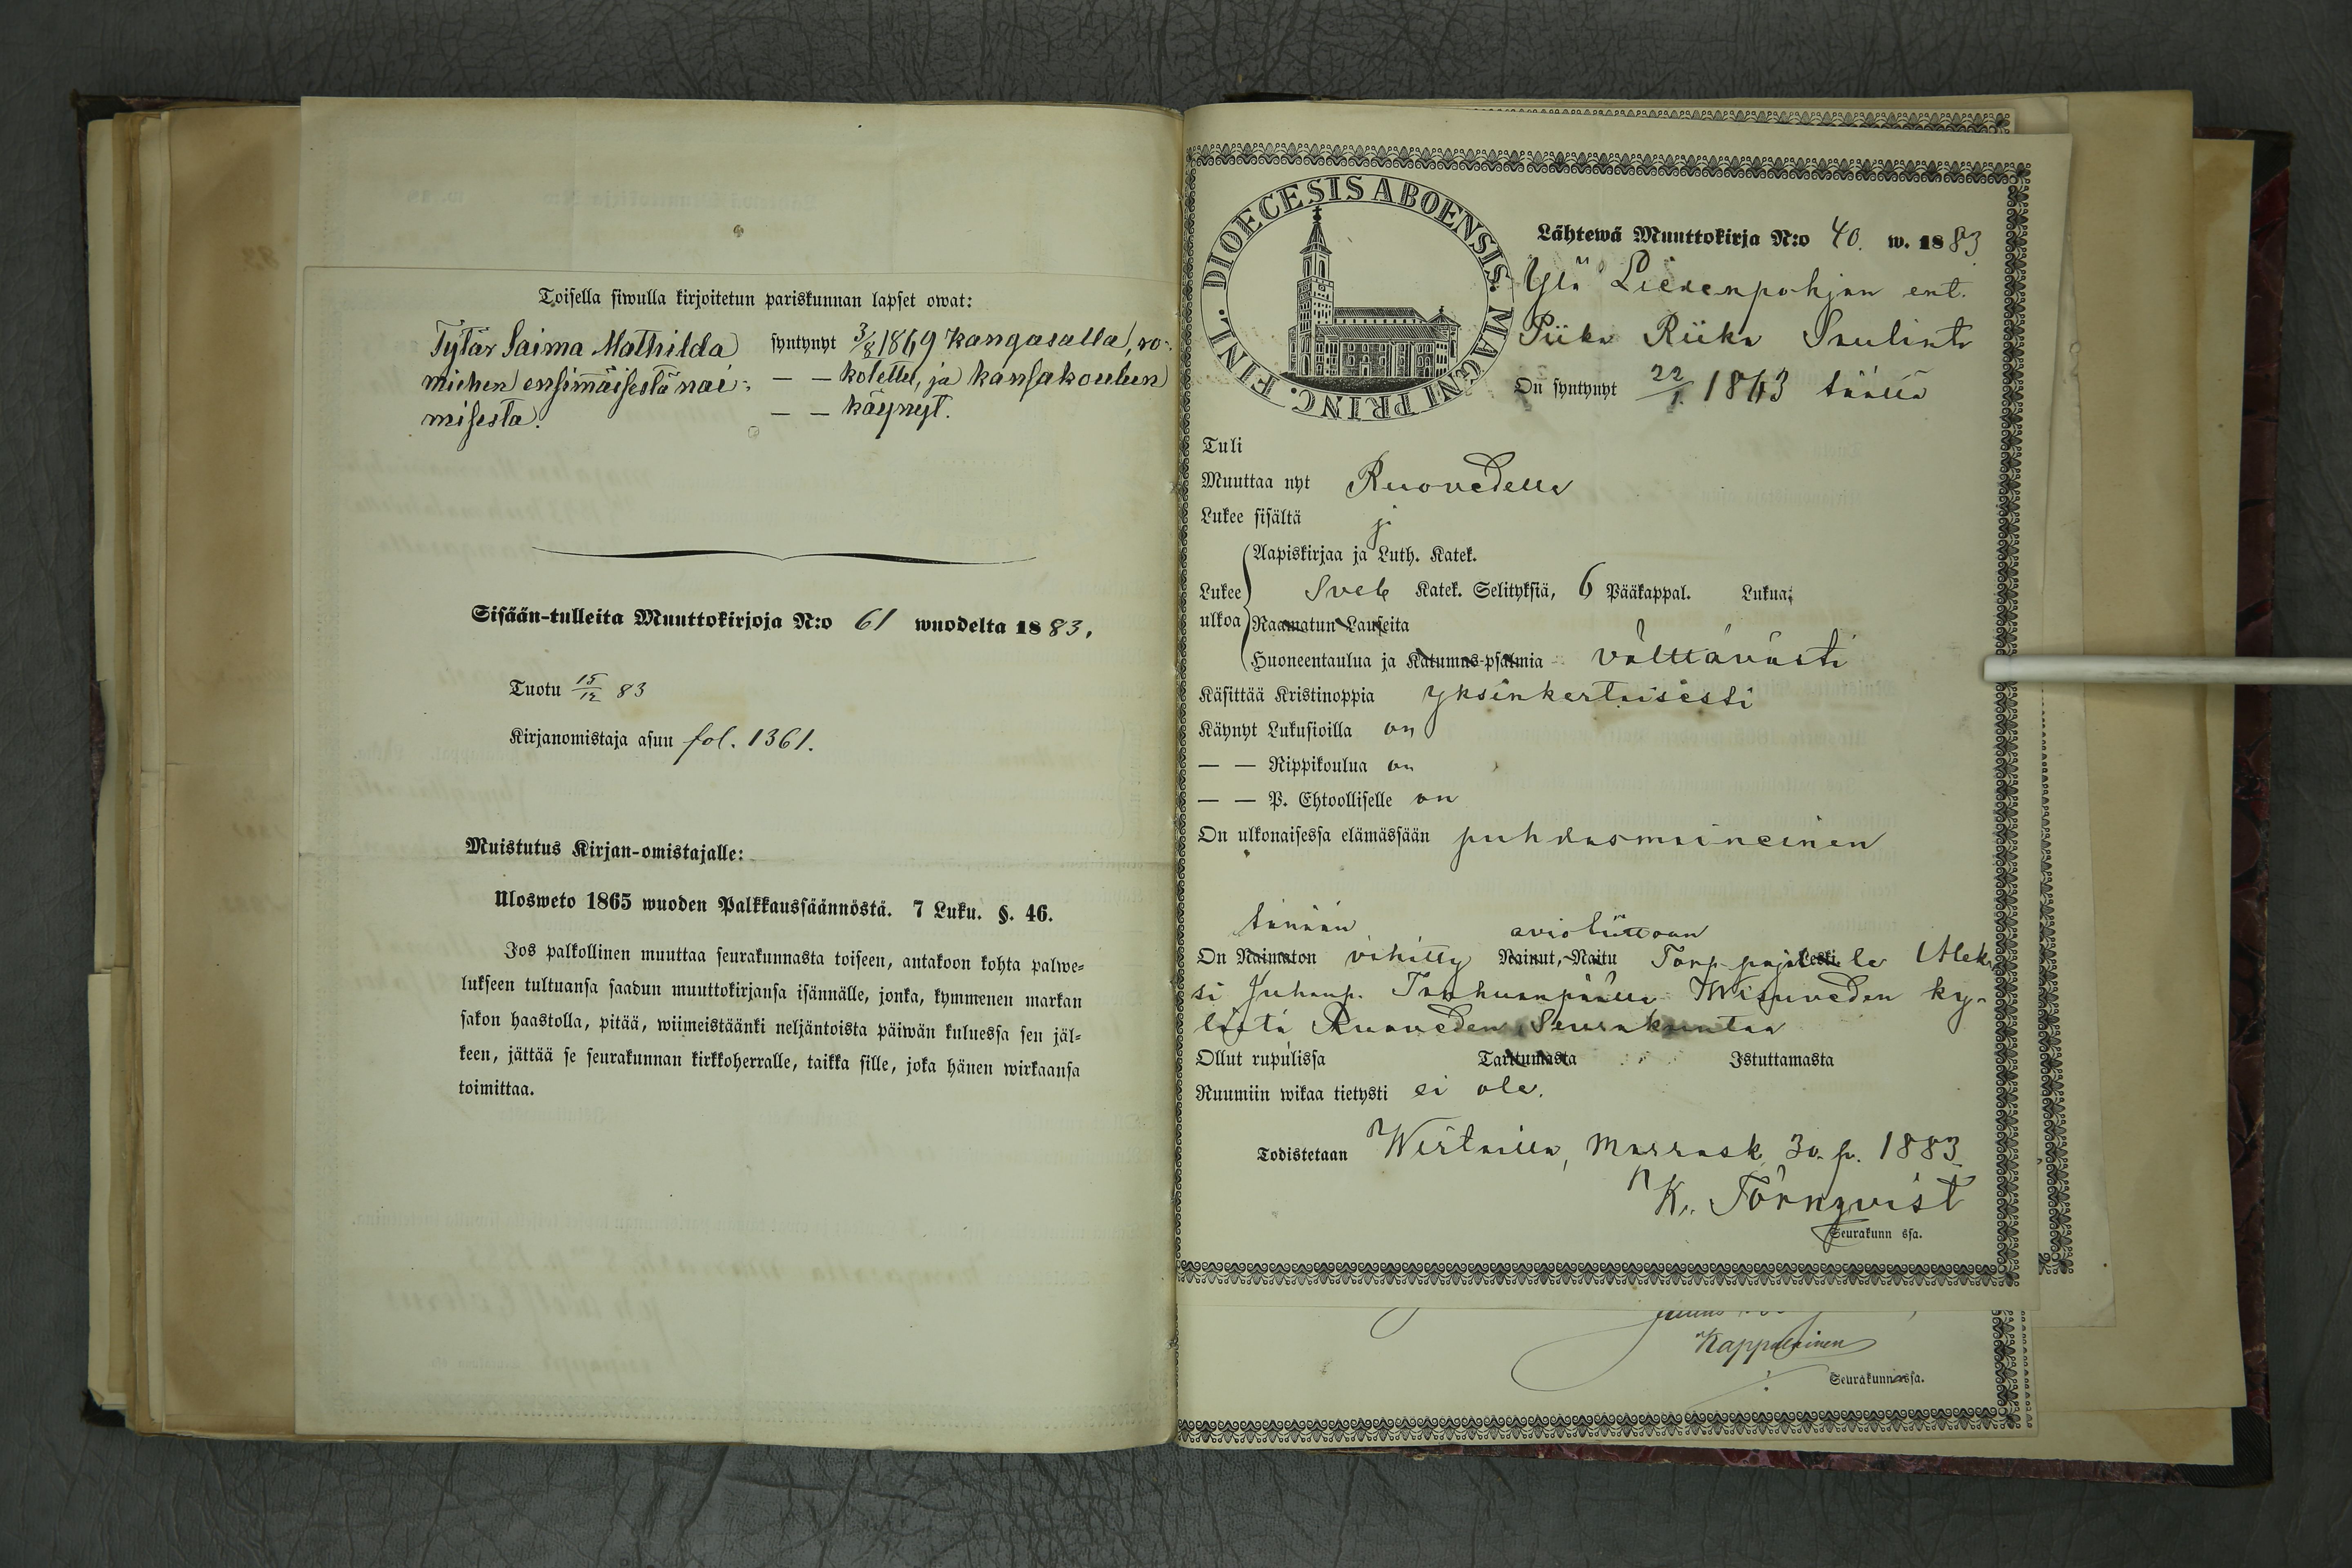 Toisella siwulla kirjoitetun pariskunnan lapset owat:
Tytär Saima Mathilda syntynyt 3/8 1869 Kangasalla, ro-
miehen ensimäisestä nai- — — kotettu, ja kansakoulun
misesta. — — käynyt.
Sisään-tulleita Muuttokirjoja N:o 61 wuodelta 1883.
Tuotu 15/12 83
Kirjanomistaja asuu fol. 1361.
Muistutus Kirjan-omistajalle:
Ulosweto 1865 wuoden Palkkaussäännöstä. 7 Luku. §. 46.
Jos palkollinen muuttaa seurakunnasta toiseen, antakoon kohta palwe-
lukseen tultuansa saadun muuttokirjansa isännälle, jonka, kymmenen markan
sakon haastolla, pitää, wiimeistäänki neljäntoista päiwän kuluessa sen jäl-
keen, jättää se seurakunnan kirkkoherralle, taikka sille, joka hänen wirkaansa
toimittaa.
DIOECESIS ABOENSIS. MAGNI PRINC. FINL.
Lähtewä Muuttokirja N:o 40. w. 1883
Ylä Liedenpohjan ent.
Piika Riika Paulinta
On syntynyt 22/1 1843 täällä
Tuli
Muuttaa nyt Ruovedelle
Lukee sisältä
Aapiskirjaa ja Luth. Katek.
Lukee Sveb Katek. Selityksiä, 6 Pääkappal. Lukua;
ulkoa Raamatun Lauseita
Huoneentaulua ja Katumus-psalmia välttävästi
Käsittää Kristinoppia yksinkertaisesti
Käynyt Lukusioilla on
— — Rippikoulua on
— — P. Ehtoolliselle on
On ulkonaisessa elämässään puhdasmaineinen
tänään avioliittoon
On Naimaton vihitty Nainut, Naitu Leski Alek-
si Juhanp. Visuveden ky-
lästä Ruoveden Seurakuntaa
Ollut rupulissa Tarttumasta Istuttamasta
Ruumiin wikaa tietysti ei ole.
Todistetaan Wirtailla, Marrask 30 p. 1883
K. Törnqvist
Seurakunn ssa.
Kappalainen
Seurakunnassa.